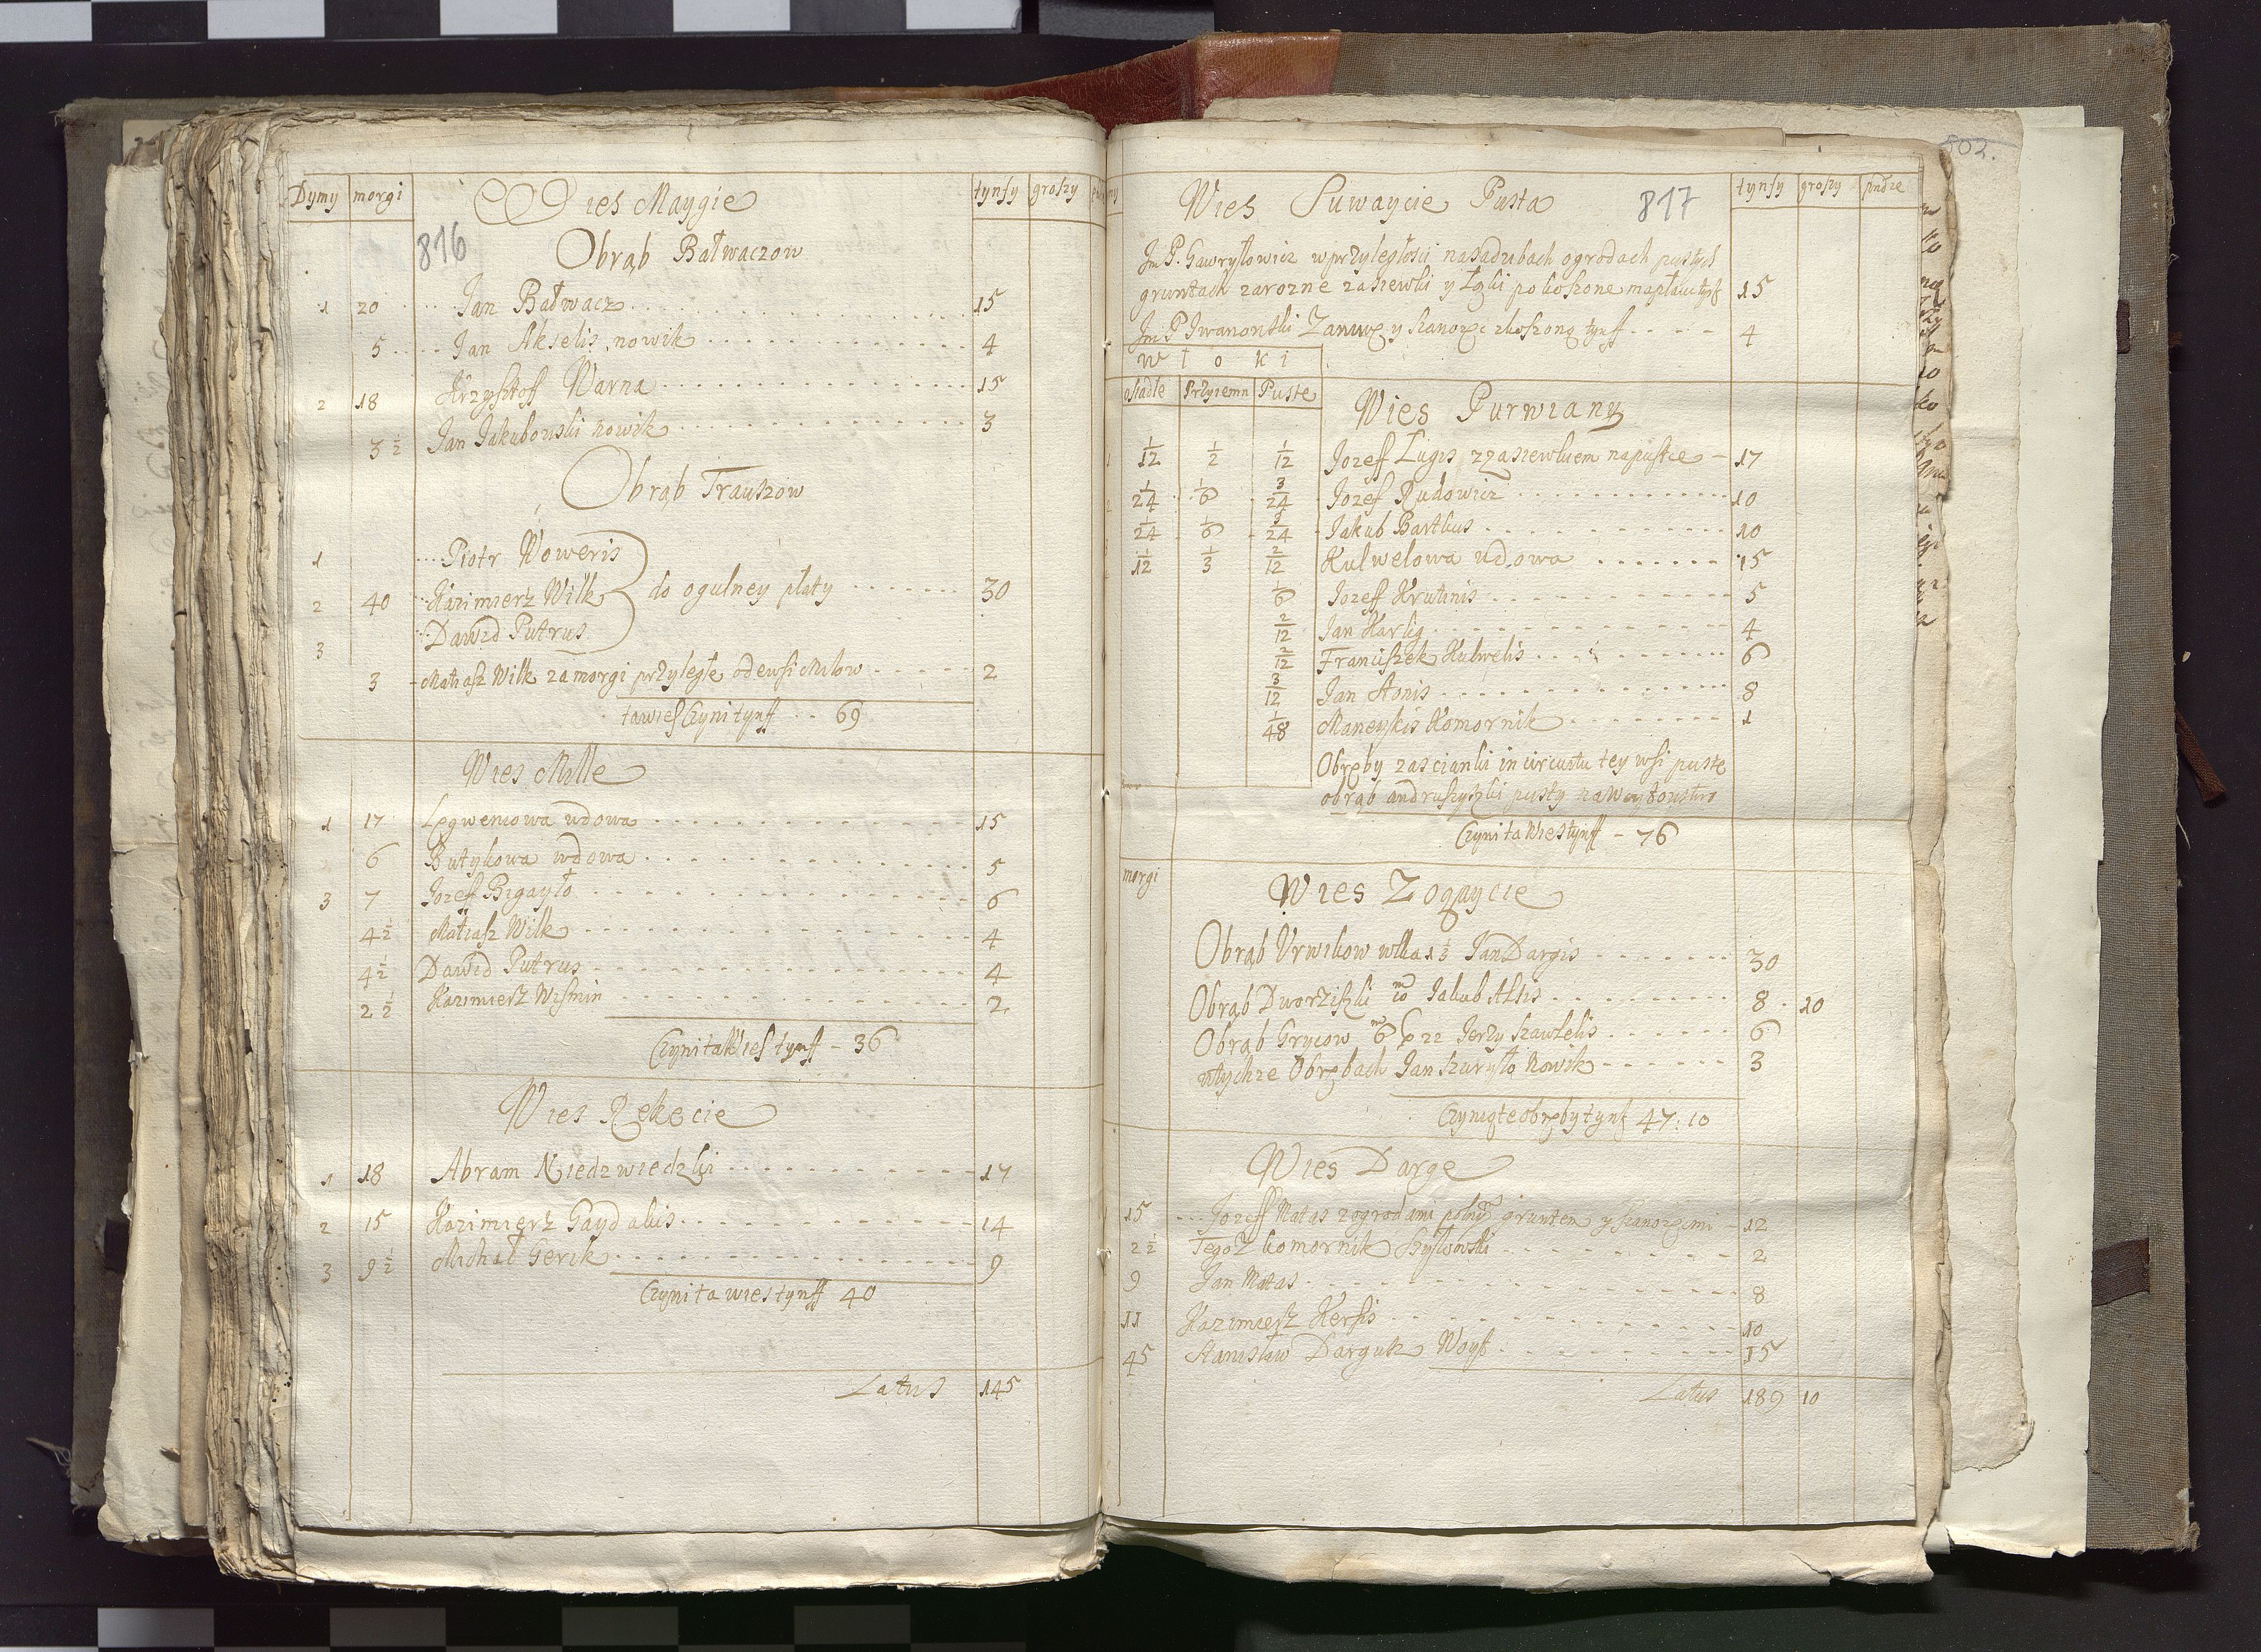 Dymy morgi Wies Maygie tynfy groszy
816
Obrąb Bałwaczow
1 20 Jan Bałwacz 15
5 Jan Akselis nowik 4
2 18 Krzysztoff Warna 15
3 1/2 Jan Jakubowski nowik 3
Obrąb Trauszow
1 Piotr Noweris
2 40 Kazimierz Wilk do ogulney płaty 30
3 Dawid Putrus
3 Matiasz Wilk za morgi przyległe odewsi Milow 2
ta wies Czyni tynff 69
Wies Mille
1 17 Lęgweniowa wdowa 15
6 Butykowa wdowa 5
3 7 Jozeff Bigayło 6
4 1/2 Matiasz Wilk 4
4 1/2 Dawid Putrus 4
2 1/2 Kazimierz Wismin 2
Czyni ta Wies tynff - 36
Wies Rekecie
1 18 Abram Niedzwiedzki 17
2 15 Kazimierz Gaydalis 14
3 9 1/2 Michał Gerik 9
Czyni ta wies tynff 40
Latus 145
502.
Wies Suwaycie Pusta 817 tynfy groszy
Jm P. Gawryłowicz w przyległosci na sadubach ogrodach pustych
gruntach zarozne zasiewki y łąki pokoszone ma płacic tynf 15
Jm P Iwanowski koszono tynff 4
w ł o k i
osiadłe Przyiemn Puste
Wies Purwiany
1 1/12 1/2 1/12 Jozeff Lugis z zasiewkiem na pustce - 17
2 1/24 1/6 3/24 Jozef Rudowicz 10
1/24 1/6 3/24 Jakub Bartkus 10
1/12 1/3 2/12 Kulwelowa wdowa 15
1/6 Jozeff Krutinis 5
2/12 Jan Karlig 4
2/12 Franciszek Kulwelis 6
3/12 Jan Stonis 8
1/48 Maneykis Komornik 1
Obręby zascianki in circuitu tey wsi puste
obrąb andruszyszki pusty
Czyni ta Wies tynff - 76
morgi
Wies Zogaycie
Obrąb Urwikow włka 1 1/2 Jan Dargis 30
Obrąb Dworziszki mo 10 Jakub Alsis 8 10
Obrąb Grycow mo 6 22 Jerzy Szawlelis 6
w tychze Obrębach Jan Szuryło Nowik 3
Czynią te obręby tynf 47:10
Wies Darge
15 Jozeff Matas z ogrodami polny gruntem y sianozęmi - 12
2 1/2 Tegoz komornik Szyłowski 2
9 Jan Matas 8
11 Kazimierz Kersis 10
45 Stanisław Darguk Woyt 15
Latus 189 10